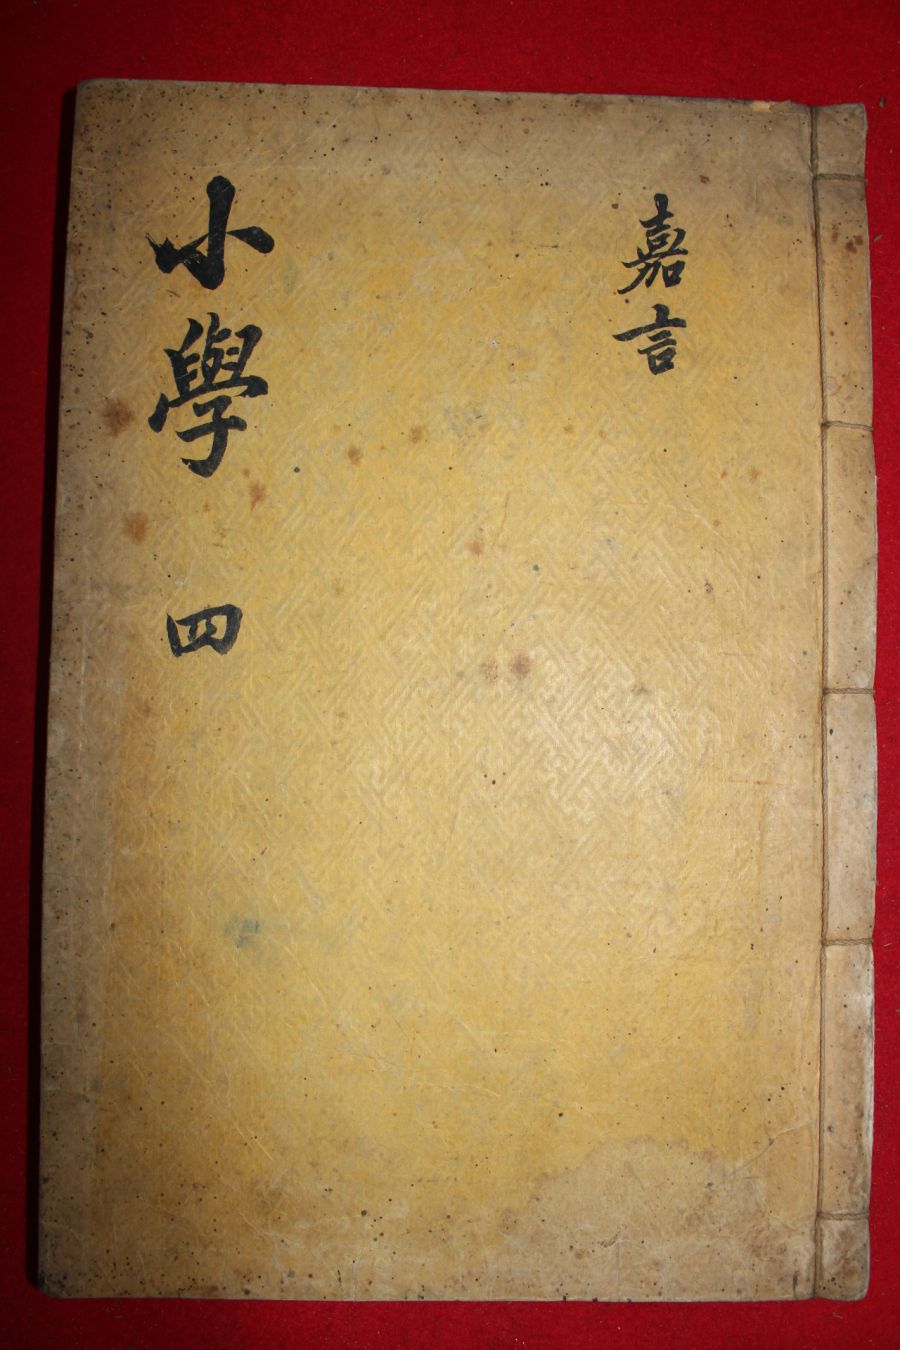 嘉言
小學 四